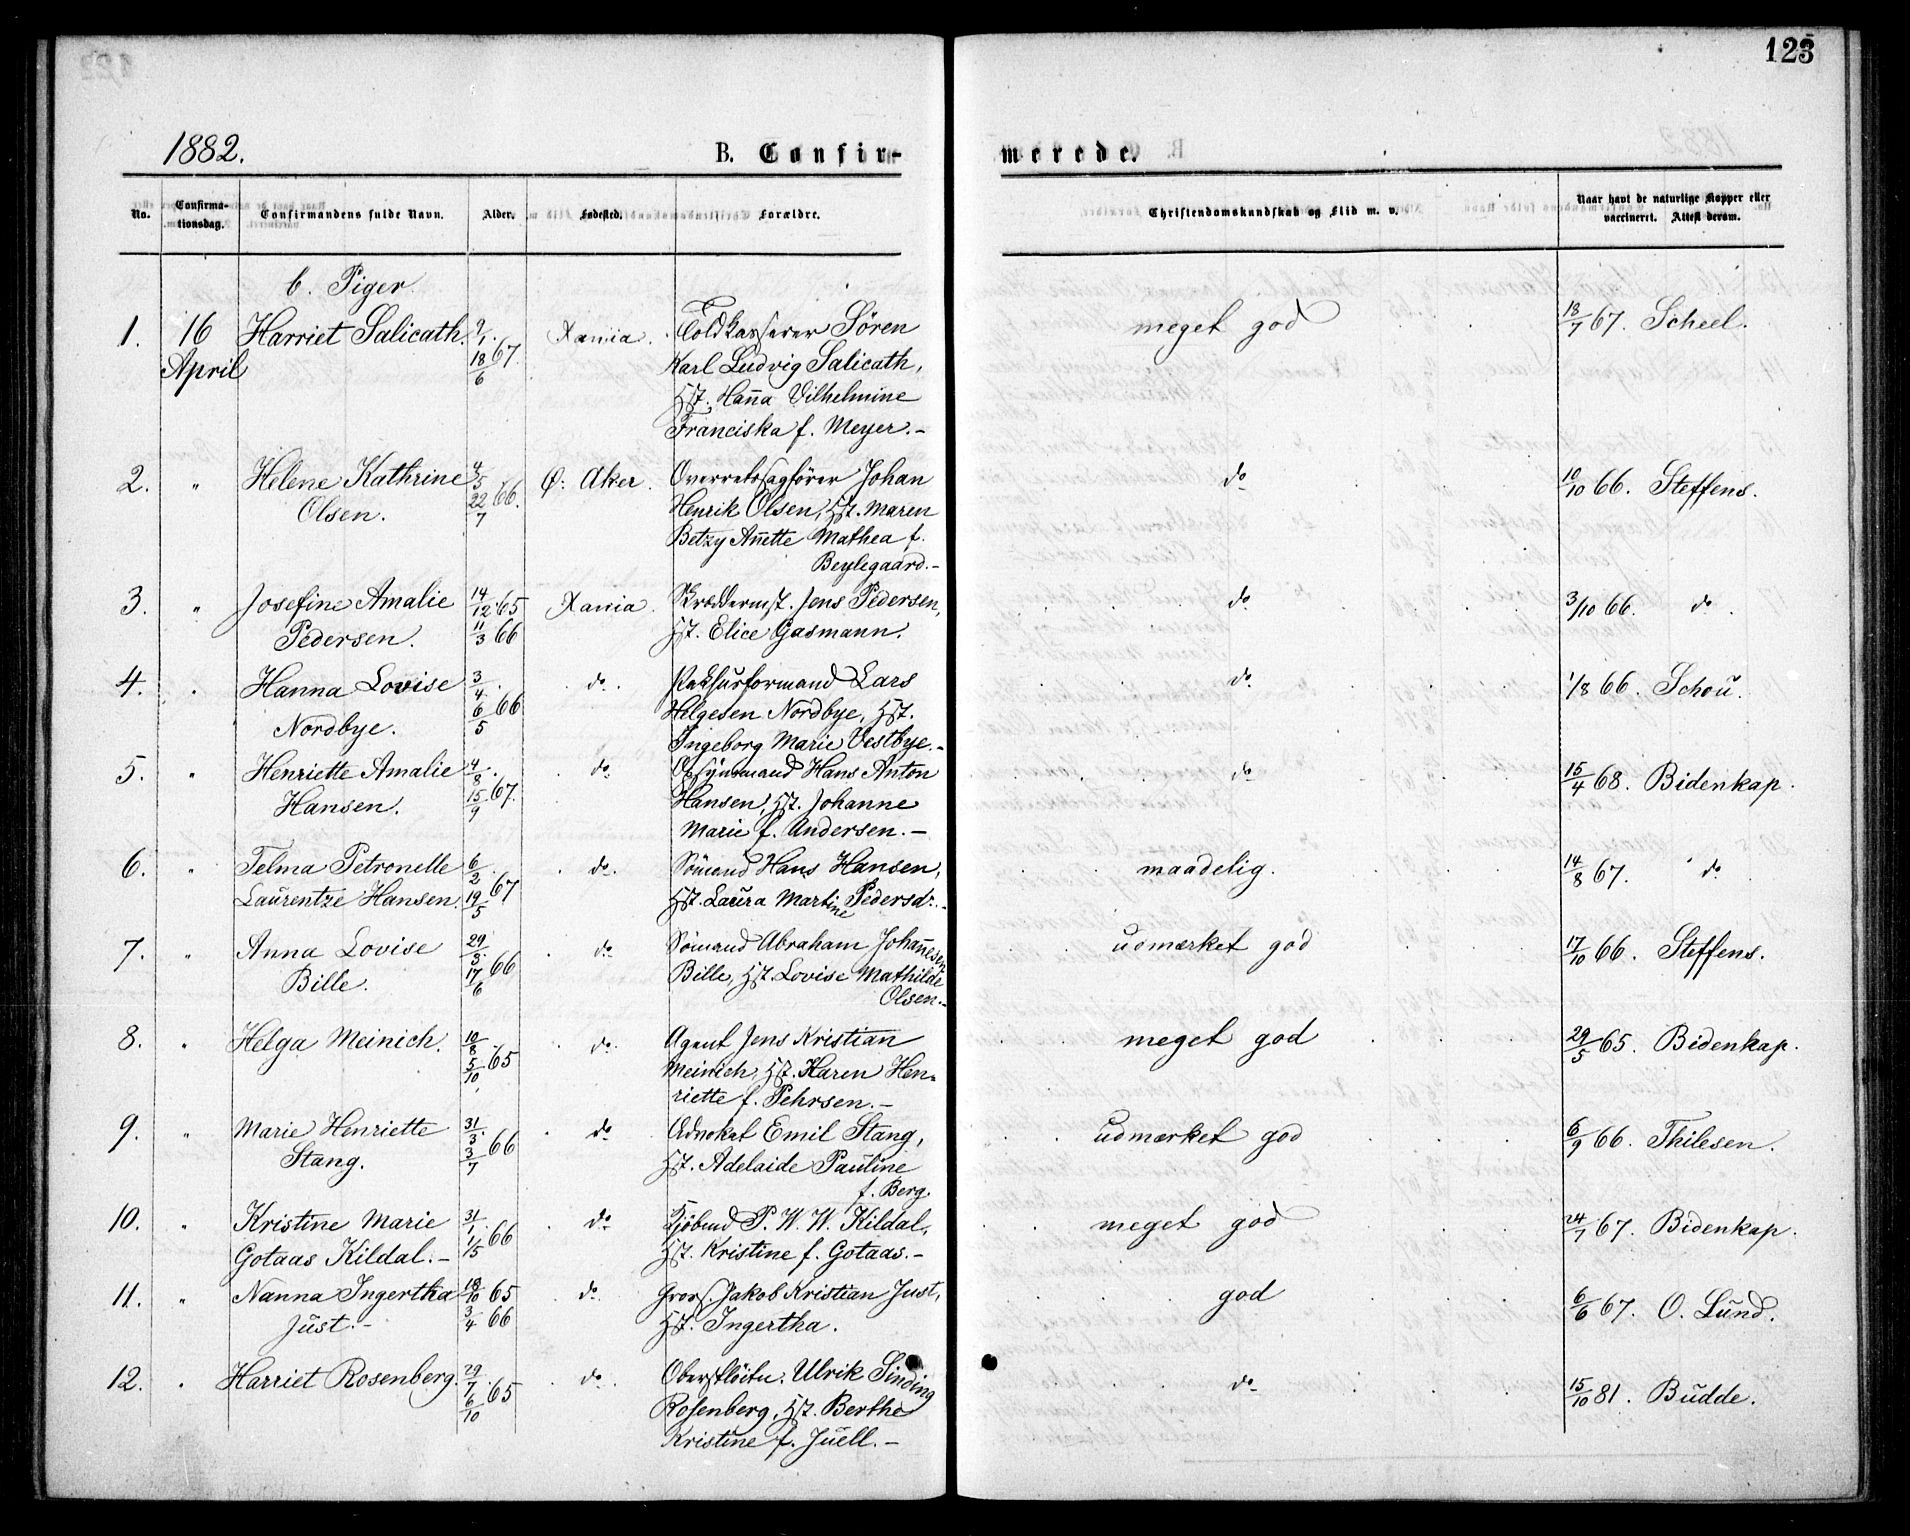 123
1882.
B. Confir-
merede.
No.
Confirma-
tionsdag.
Confirmandens fulde Navn.
Alder.
Fødested.
Forældre.
Christendomskundskab og Flid m. v.
Naar havt de naturlige Kopper eller
vaccineret. Attest derom.
b. Piger.
1. 16 Harriet Salicath. 9/1 Xania. Toldkasserer Sören meget god 18/7 67. Scheel.
April 18/6 67. Karl Ludvig Salicath,
Hst. Hanna Vilhelmine
Franciska f. Meyer.-
2. " Helene Kathrine 4/5 Ø: Aker. Overretssagförer Johan do 10/10 66. Steffens.
Olsen. 22/7 66. Henrik Olsen, Hst. Maren
Betzy Anette Mathea f.
Beylegaard.-
3. " Josefine Amalie 14/12 65 Xania. Skræddermst. Jens Pedersen, do 3/10 66. do.
Pedersen. 11/3 66 Hst. Elice Gasmann.
4. . Hanna Lovise 3/4 do. Lars do 1/8 66. Schou.
Nordbye. 6/5 66 Helgesen Nordbye, Hst.
Ingeborg Marie Vestbye.-
5. " Henriette Amalie 4/8 do Opsynsmand Hans Anton do 15/4 68. Bidenkap.
Hansen. 15/9 67. Hansen, Hst. Johanne
Marie f. Andersen.-
6. " Telma Petronelle 6/2 do. Sömand Hans Hansen, maadelig. 14/8 67. do
Laurentze Hansen. 19/5 67 Hst. Laura Martine Pedersdr.-
7. " Anna Lovise 29/3 do Sömand Abraham Johannesen udmærket god 17/10 66. Steffens.
Bille. 17/6 66 Bille, Hst. Lovise Mathilde
Olsen.-
8. " Helga Meinich. 10/8 do. Agent Jens Kristian meget god 29/5 65. Bidenkap.
5/10 65 Meinich, Hst. Karen Hen-
riette f. Pehrsen.-
9. " Marie Henriette 31/3 do Advokat Emil Stang, udmærket god 6/9 66. Thilesen.
Stang. 3/7 66 Hst. Adelaide Pauline
f. Berg.
10. " Kristine Marie 31/1 do Kjöbmd P. W. W. Kildal, meget god 24/7 67. Bidenkap.
Gotaas Kildal.- 1/5 66 Hst. Kristine f. Gotaas.-
11. " Nanna Ingertha 18/10 65 do. Gross. Jakob Kristian Just, god 6/6 67. O. Lund.
Just.- 3/4 66 Hst. Ingertha.
12. . Harriet Rosenberg. 29/7 do. Oberstlöitn. Ulrik Sinding do 15/10 81. Budde.
6/10 65 Rosenberg, Hst. Berthe
Kristine f. Juell.-